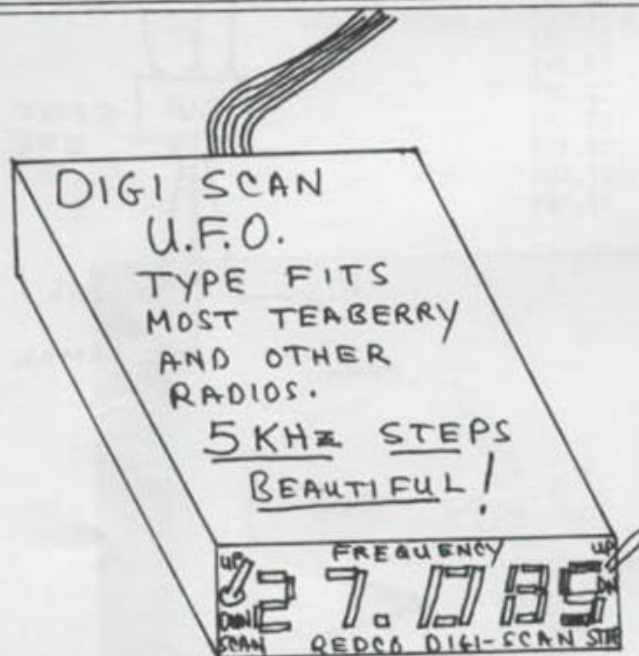 DIGI SCAN
U.F.O.
TYPE FITS
MOST TEABERRY
AND OTHER
RADIOS.
5 KHz STEPS
BEAUTIFUL!
FREQUENCY
UP
UP
27.085
SCAN REDCO DIGI-SCAN